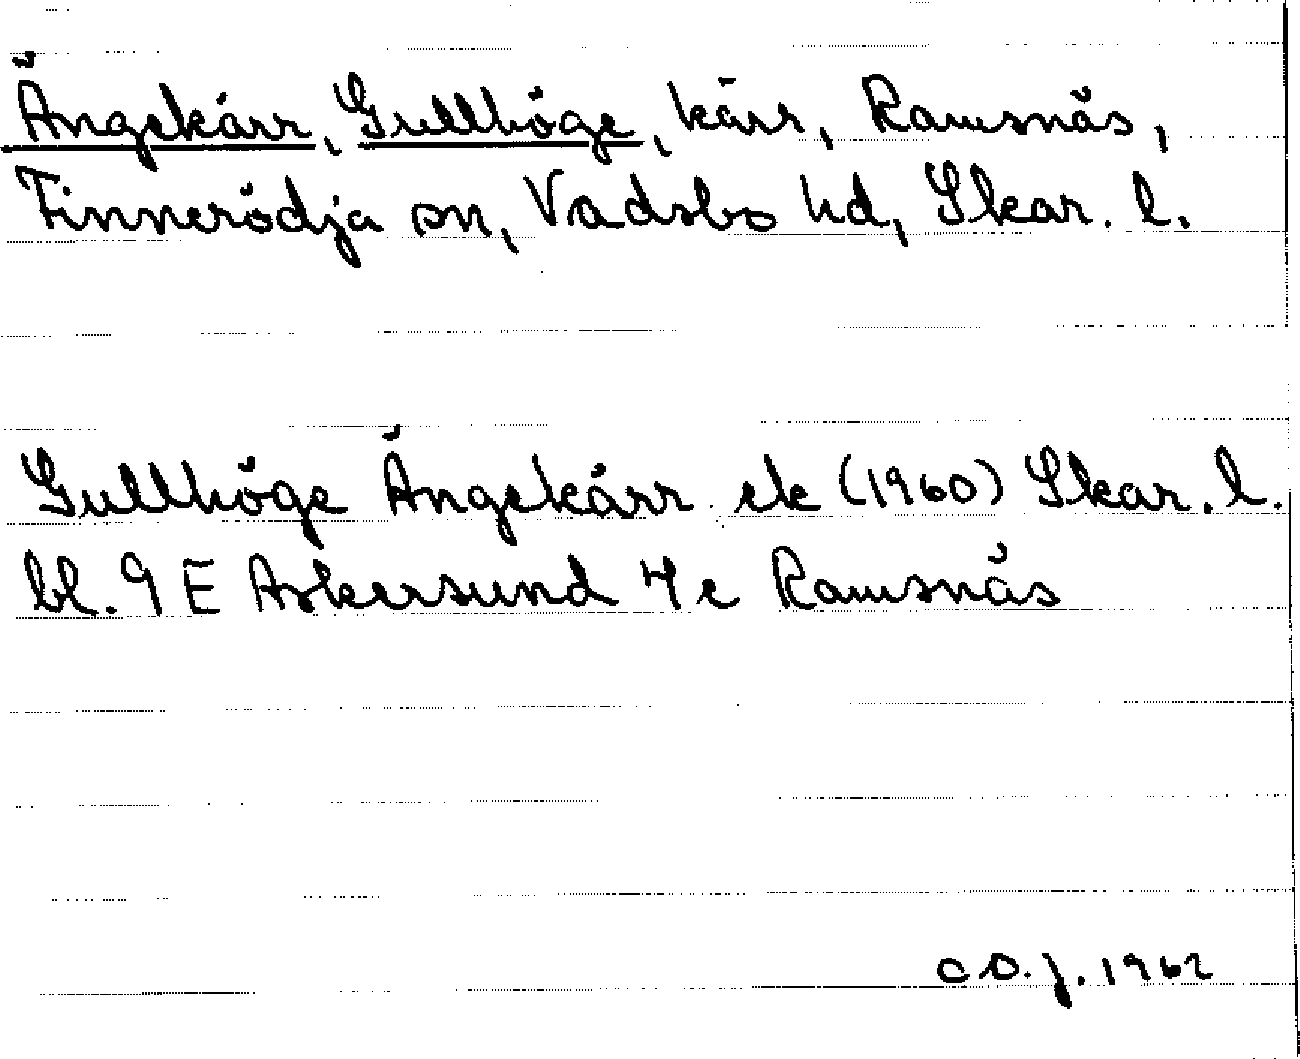 Ängekärr, Gullhöge, kärr, Ramsnäs,
Finnerödja sn, Vadsbo hd, Skar. l.
Gullhöge Ängekärr ek (1960) Skar. l.
bl. 9 E Askersund 4 c Ramsnäs
C O. J. 1962